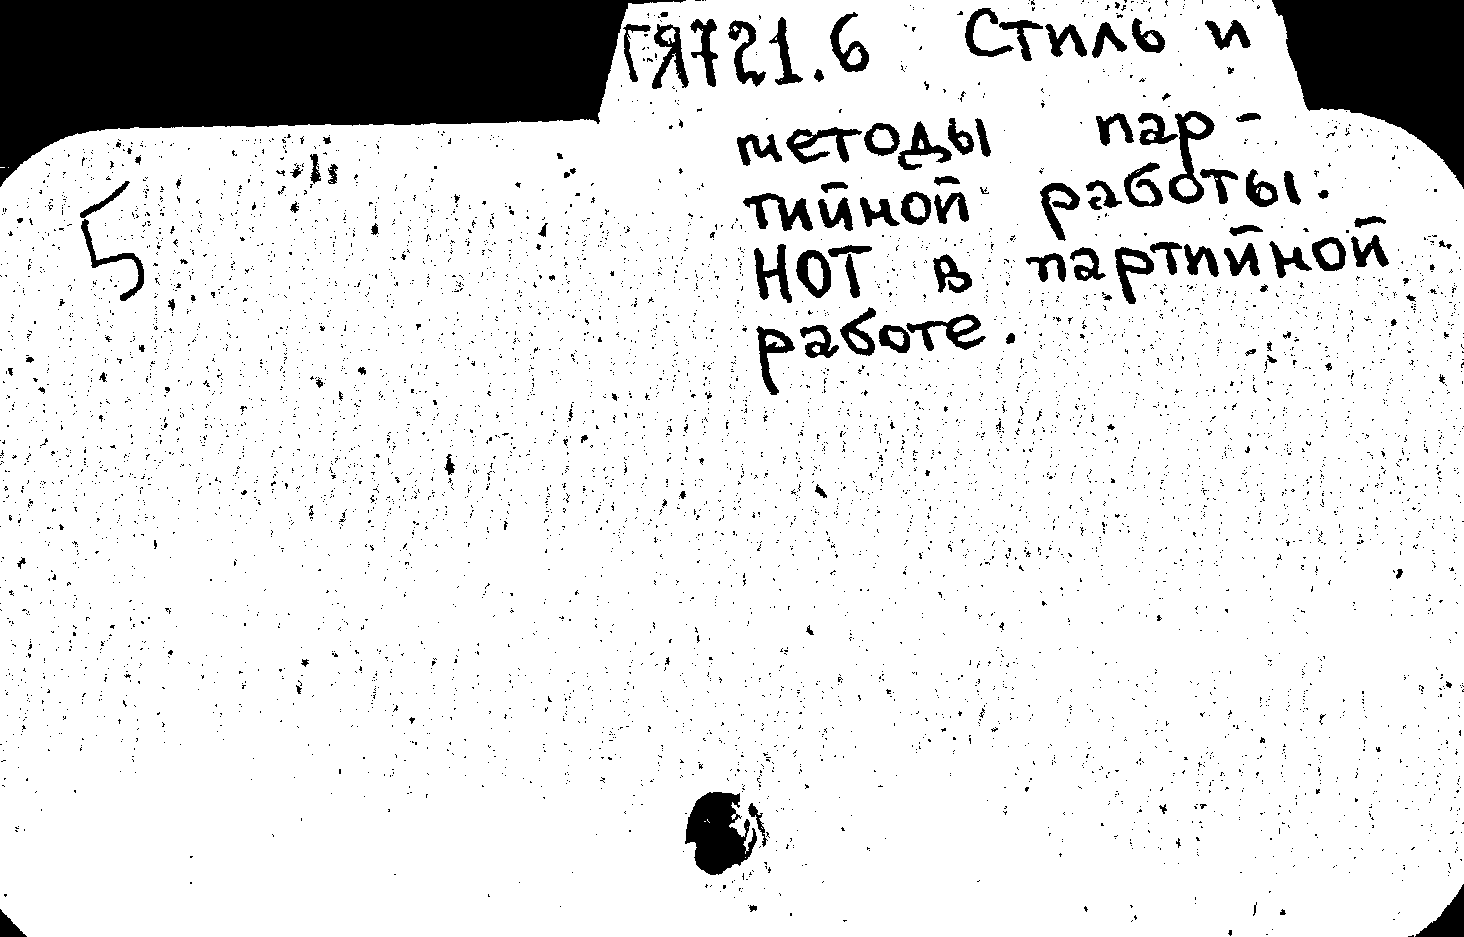 ГЯ721.6 Стиль и
методы пар-
5
тийной работы.
НОТ в партийной
работе.